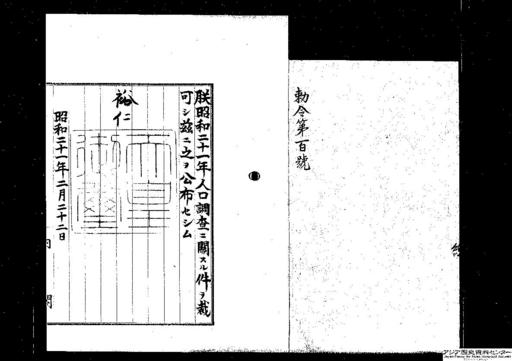 勅令第百號
朕昭和二十一年人口調查ニ關スル件ヲ裁
可シ茲ニ之ヲ公布セシム
裕仁
天皇御璽
昭和二十一年二月二十二日
アジア歴史資料センター